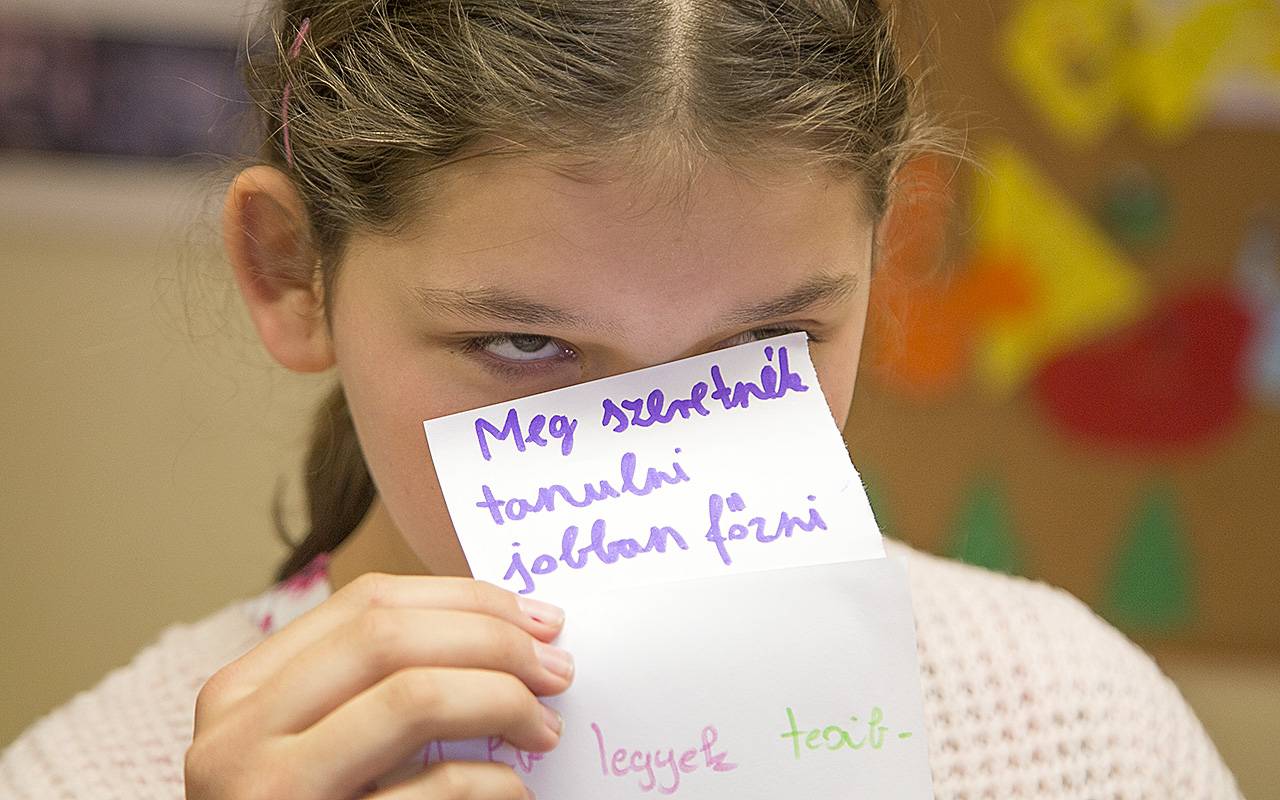 Meg szeretnék
tanulni
jobban főzni
legyek teaib-